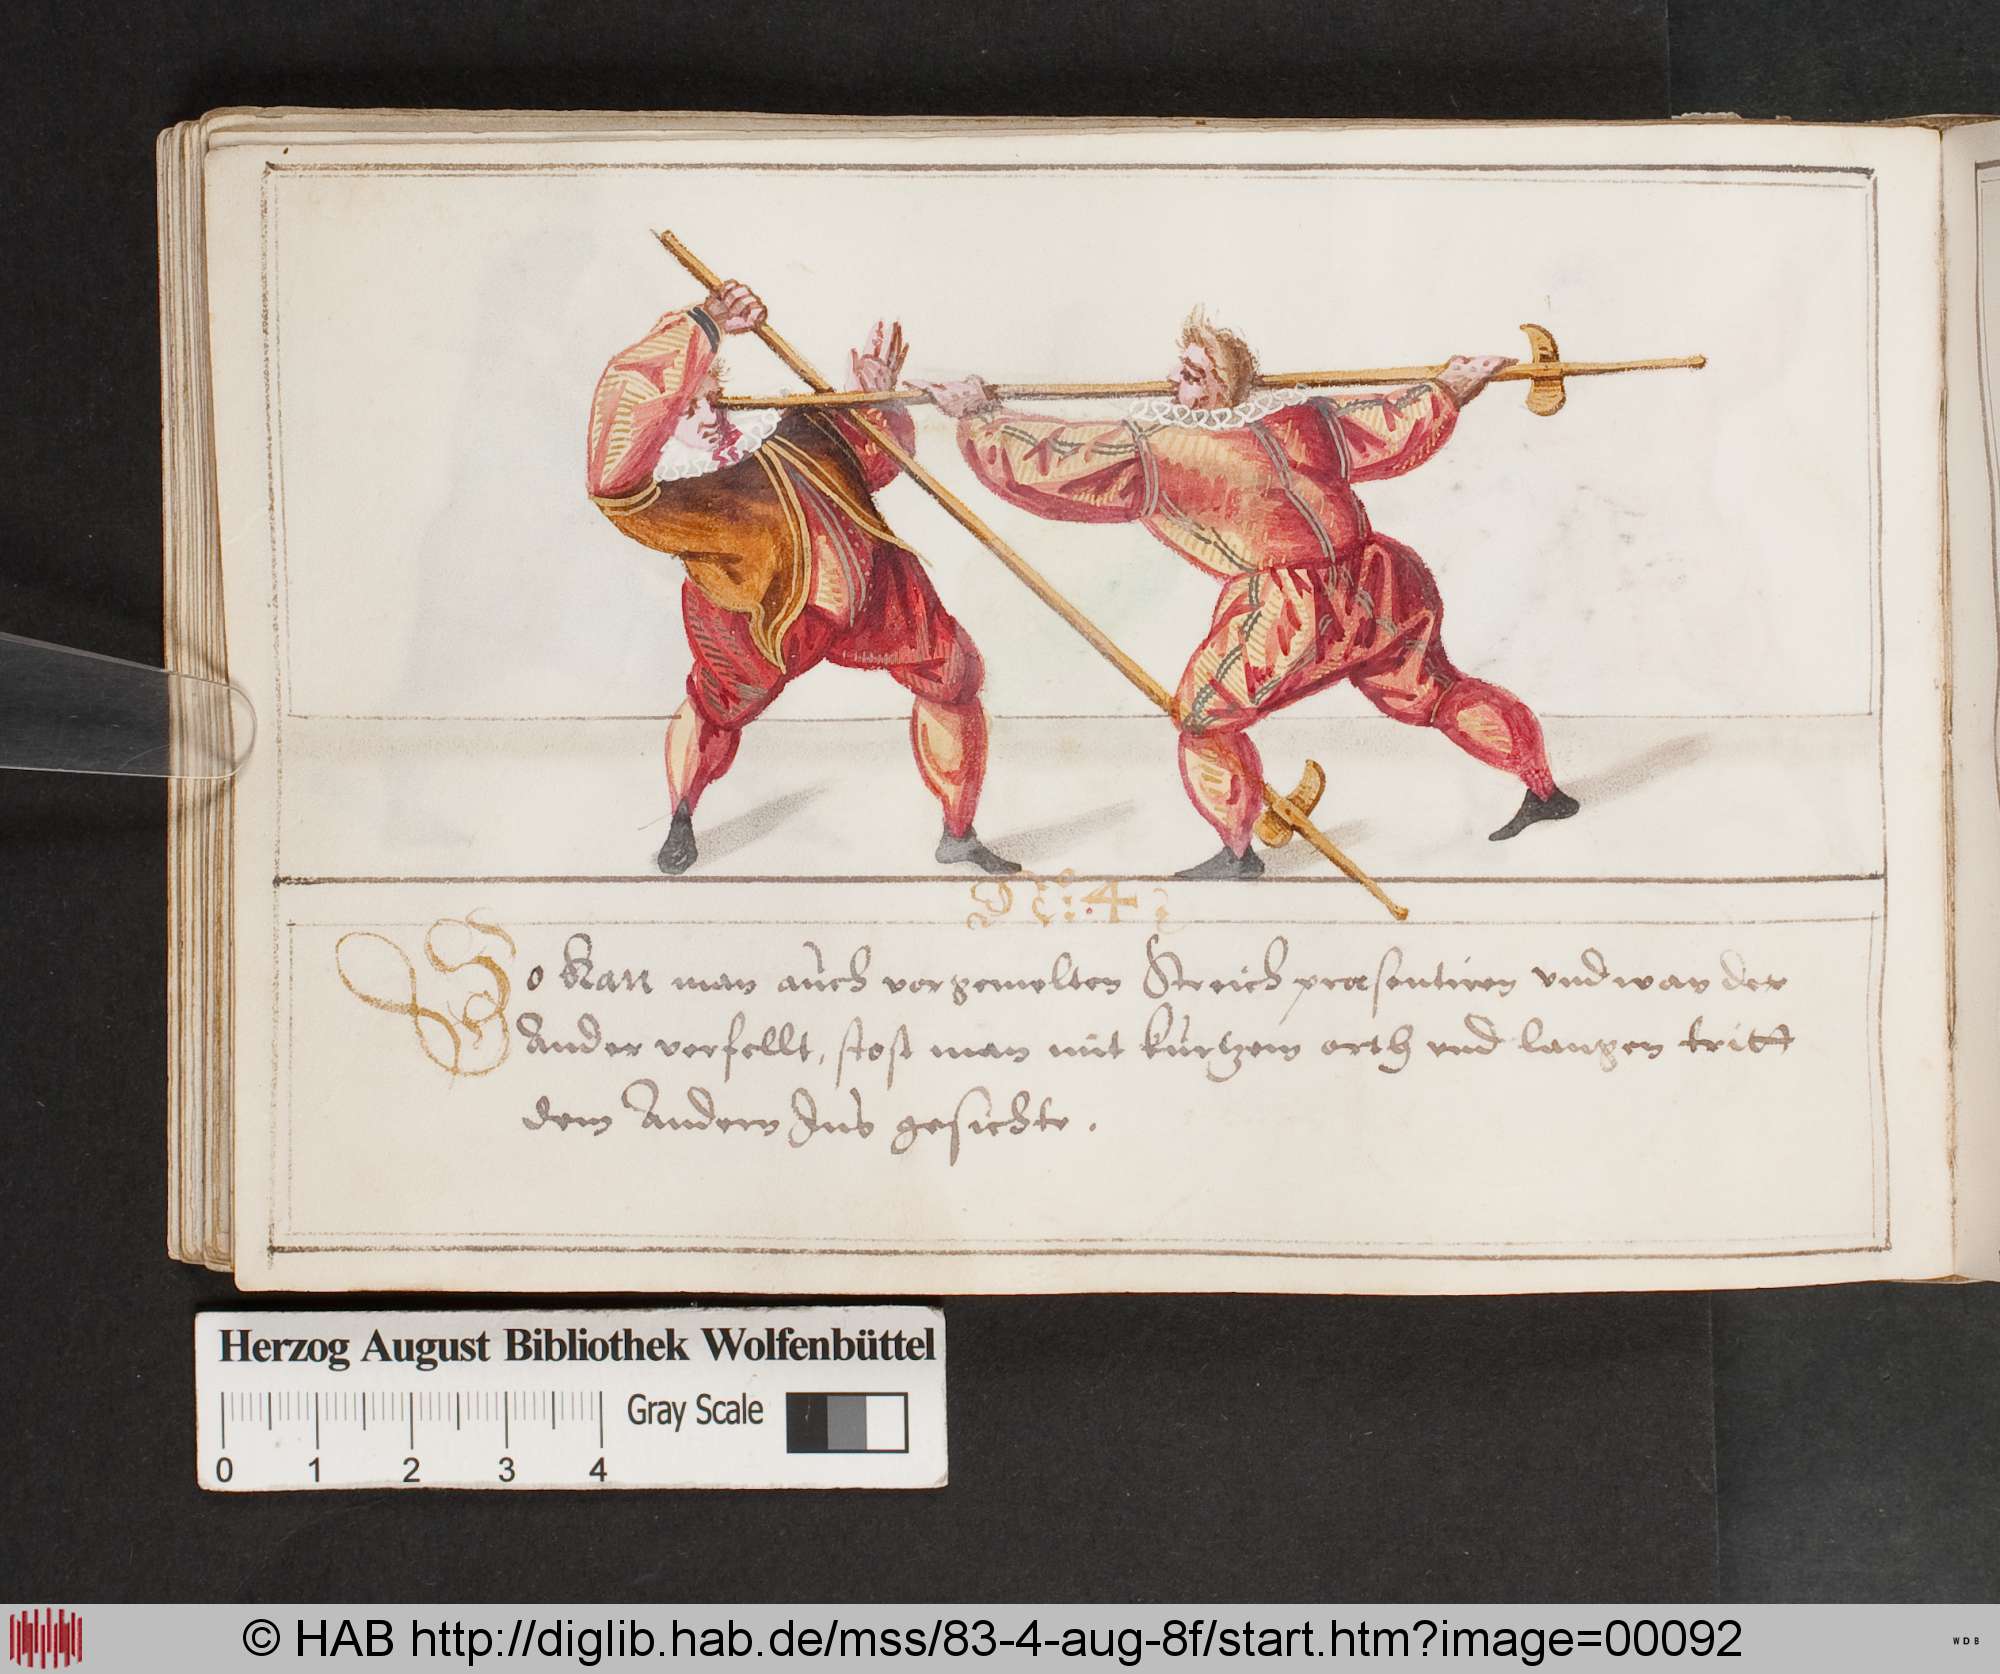 No: 4
So Kan man auch vorgemelten Streich præsentiren vnd wan der
Ander verfellt, stost man mit kurtzem orth vnd langen tritt
dem Andern Ins gesichte.
Herzog August Bibliothek Wolfenbüttel
Gray Scale
0 1 2 3 4
© HAB http://diglib.hab.de/mss/83-4-aug-8f/start.htm?image=00092
WDB